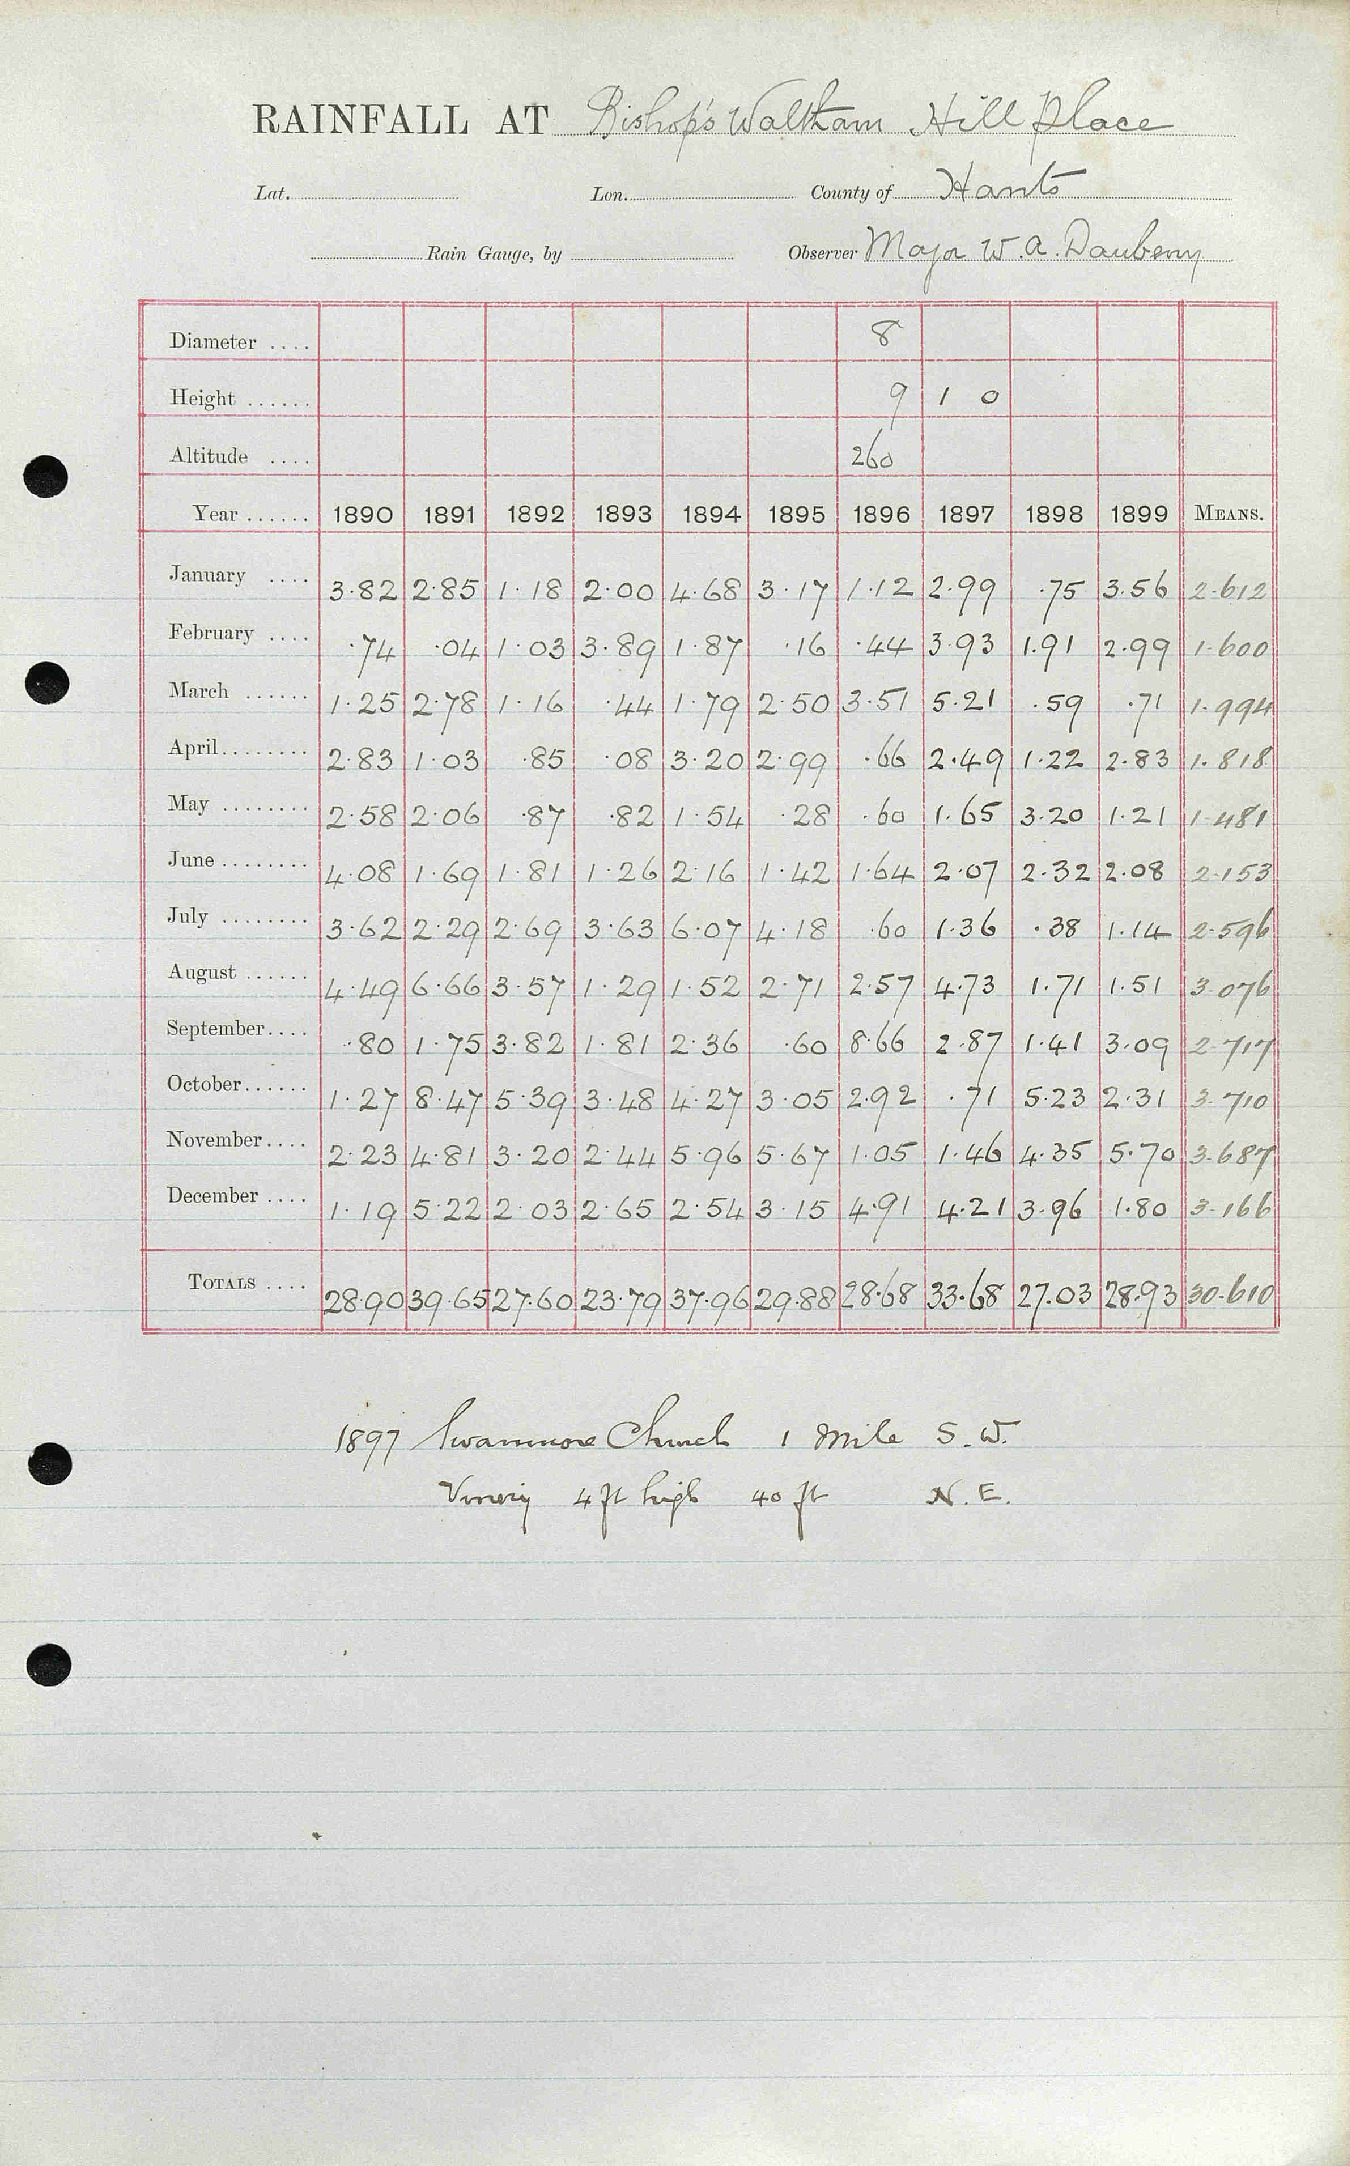 RAINFALL AT Bishop's Waltham Hill Place
Lat. Lon. County of Hants
Rain Gauge, by Observer Major W. A. Daubeny
Diameter .... 8
Height ...... 9 1 0
Altitude .... 260
Year ...... 1890 1891 1892 1893 1894 1895 1896 1897 1898 1899 MEANS.
January .... 3.82 2.85 1.18 2.00 4.68 3.17 1.12 2.99 .75 3.56 2.612
February .... .74 .04 1.03 3.89 1.87 .16 .44 3.93 1.91 2.99 1.600
March ...... 1.25 2.78 1.16 .44 1.79 2.50 3.51 5.21 .59 .71 1.994
April........ 2.83 1.03 .85 .08 3.20 2.99 .66 2.49 1.22 2.83 1.818
May ........ 2.58 2.06 .87 .82 1.54 .28 .60 1.65 3.20 1.21 1.481
June ........ 4.08 1.69 1.81 1.26 2.16 1.42 1.64 2.07 2.32 2.08 2.153
July ........ 3.62 2.29 2.69 3.63 6.07 4.18 .60 1.36 .38 1.14 2.596
August ...... 4.49 6.66 3.57 1.29 1.52 2.71 2.57 4.73 1.71 1.51 3.076
September.... .80 1.75 3.82 1.81 2.36 .60 8.66 2.87 1.41 3.09 2.717
October...... 1.27 8.47 5.39 3.48 4.27 3.05 2.92 .71 5.23 2.31 3.710
November.... 2.23 4.81 3.20 2.44 5.96 5.67 1.05 1.46 4.35 5.70 3.687
December .... 1.19 5.22 2.03 2.65 2.54 3.15 4.91 4.21 3.96 1.80 3.166
TOTALS .... 28.90 39.65 27.60 23.79 37.96 29.88 28.68 33.68 27.03 28.93 30.610
1897 Swanmore Church 1 Mile S.W.
Vinery 4 ft high 40 ft N.E.